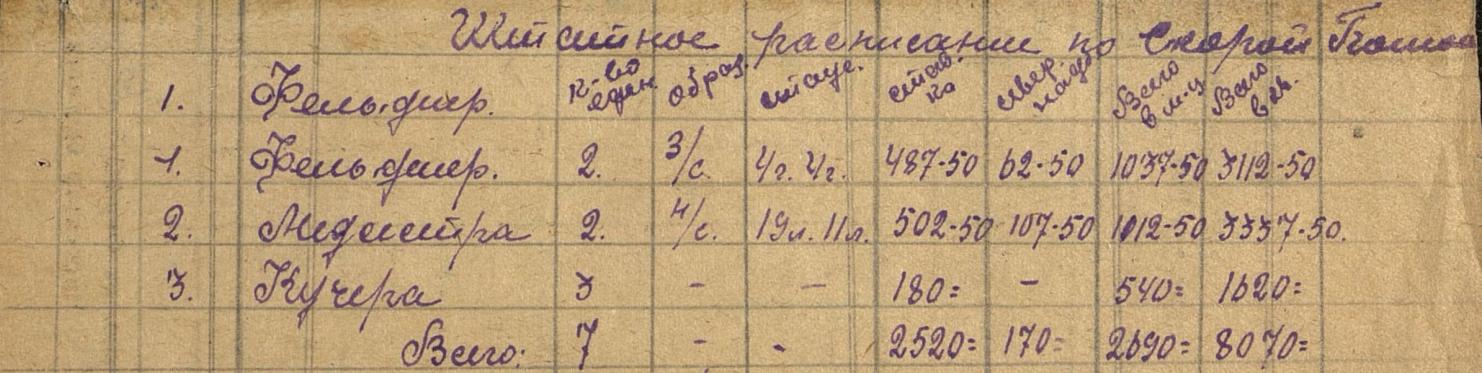 Штатное расписание по Скорой Помощ
1. Фельдшер. к-во един. образ. стаж. став-ка север. надб. Всего в м-ц Всего в кв.
1. Фельдшер. 2. 3/с. 4г. 4г. 487-50 62-50 1037-50 3112-50
2. Медсестра 2. н/с. 19л. 11л. 502-50 107-50 1112-50 3337-50.
3. Кучера 3 - - 180= - 540= 1620=
Всего: 7 - - 2520= 170= 2690= 8070=